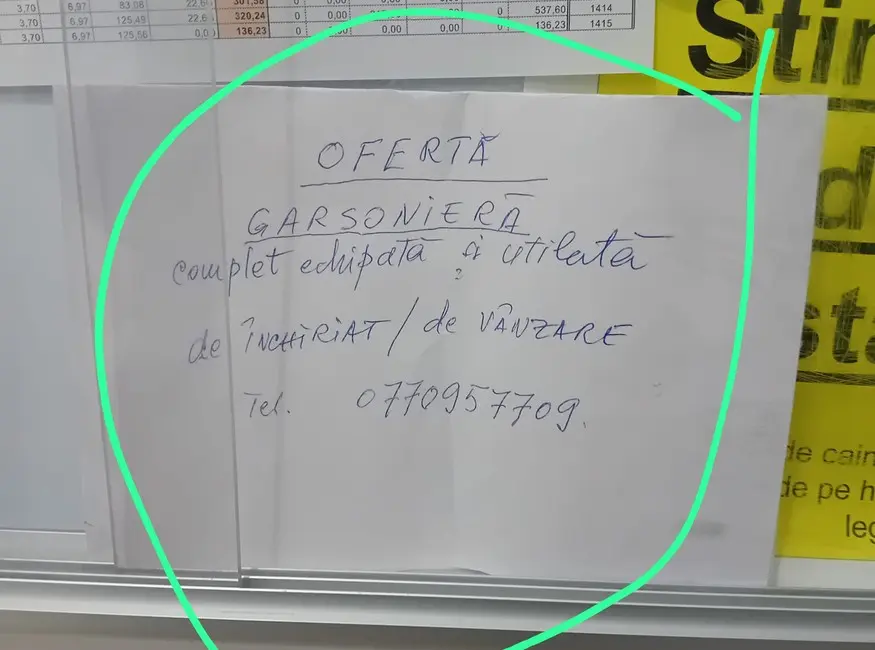 3,70 6,97 83,08 22,60 301,58 0 0,00 0,00 0
3,70 6,97 125,49 22,6 320,24 0 0,00 0 537,60 1414
3,70 6,97 175,56 0,0 136,23 0 0,00 0,00 0 136,23 1415
OFERTĂ
GARSONIERĂ
complet echipată și utilată
de ÎNCHIRIAT / de VÂNZARE
Tel. 0770957709.
de
de pe